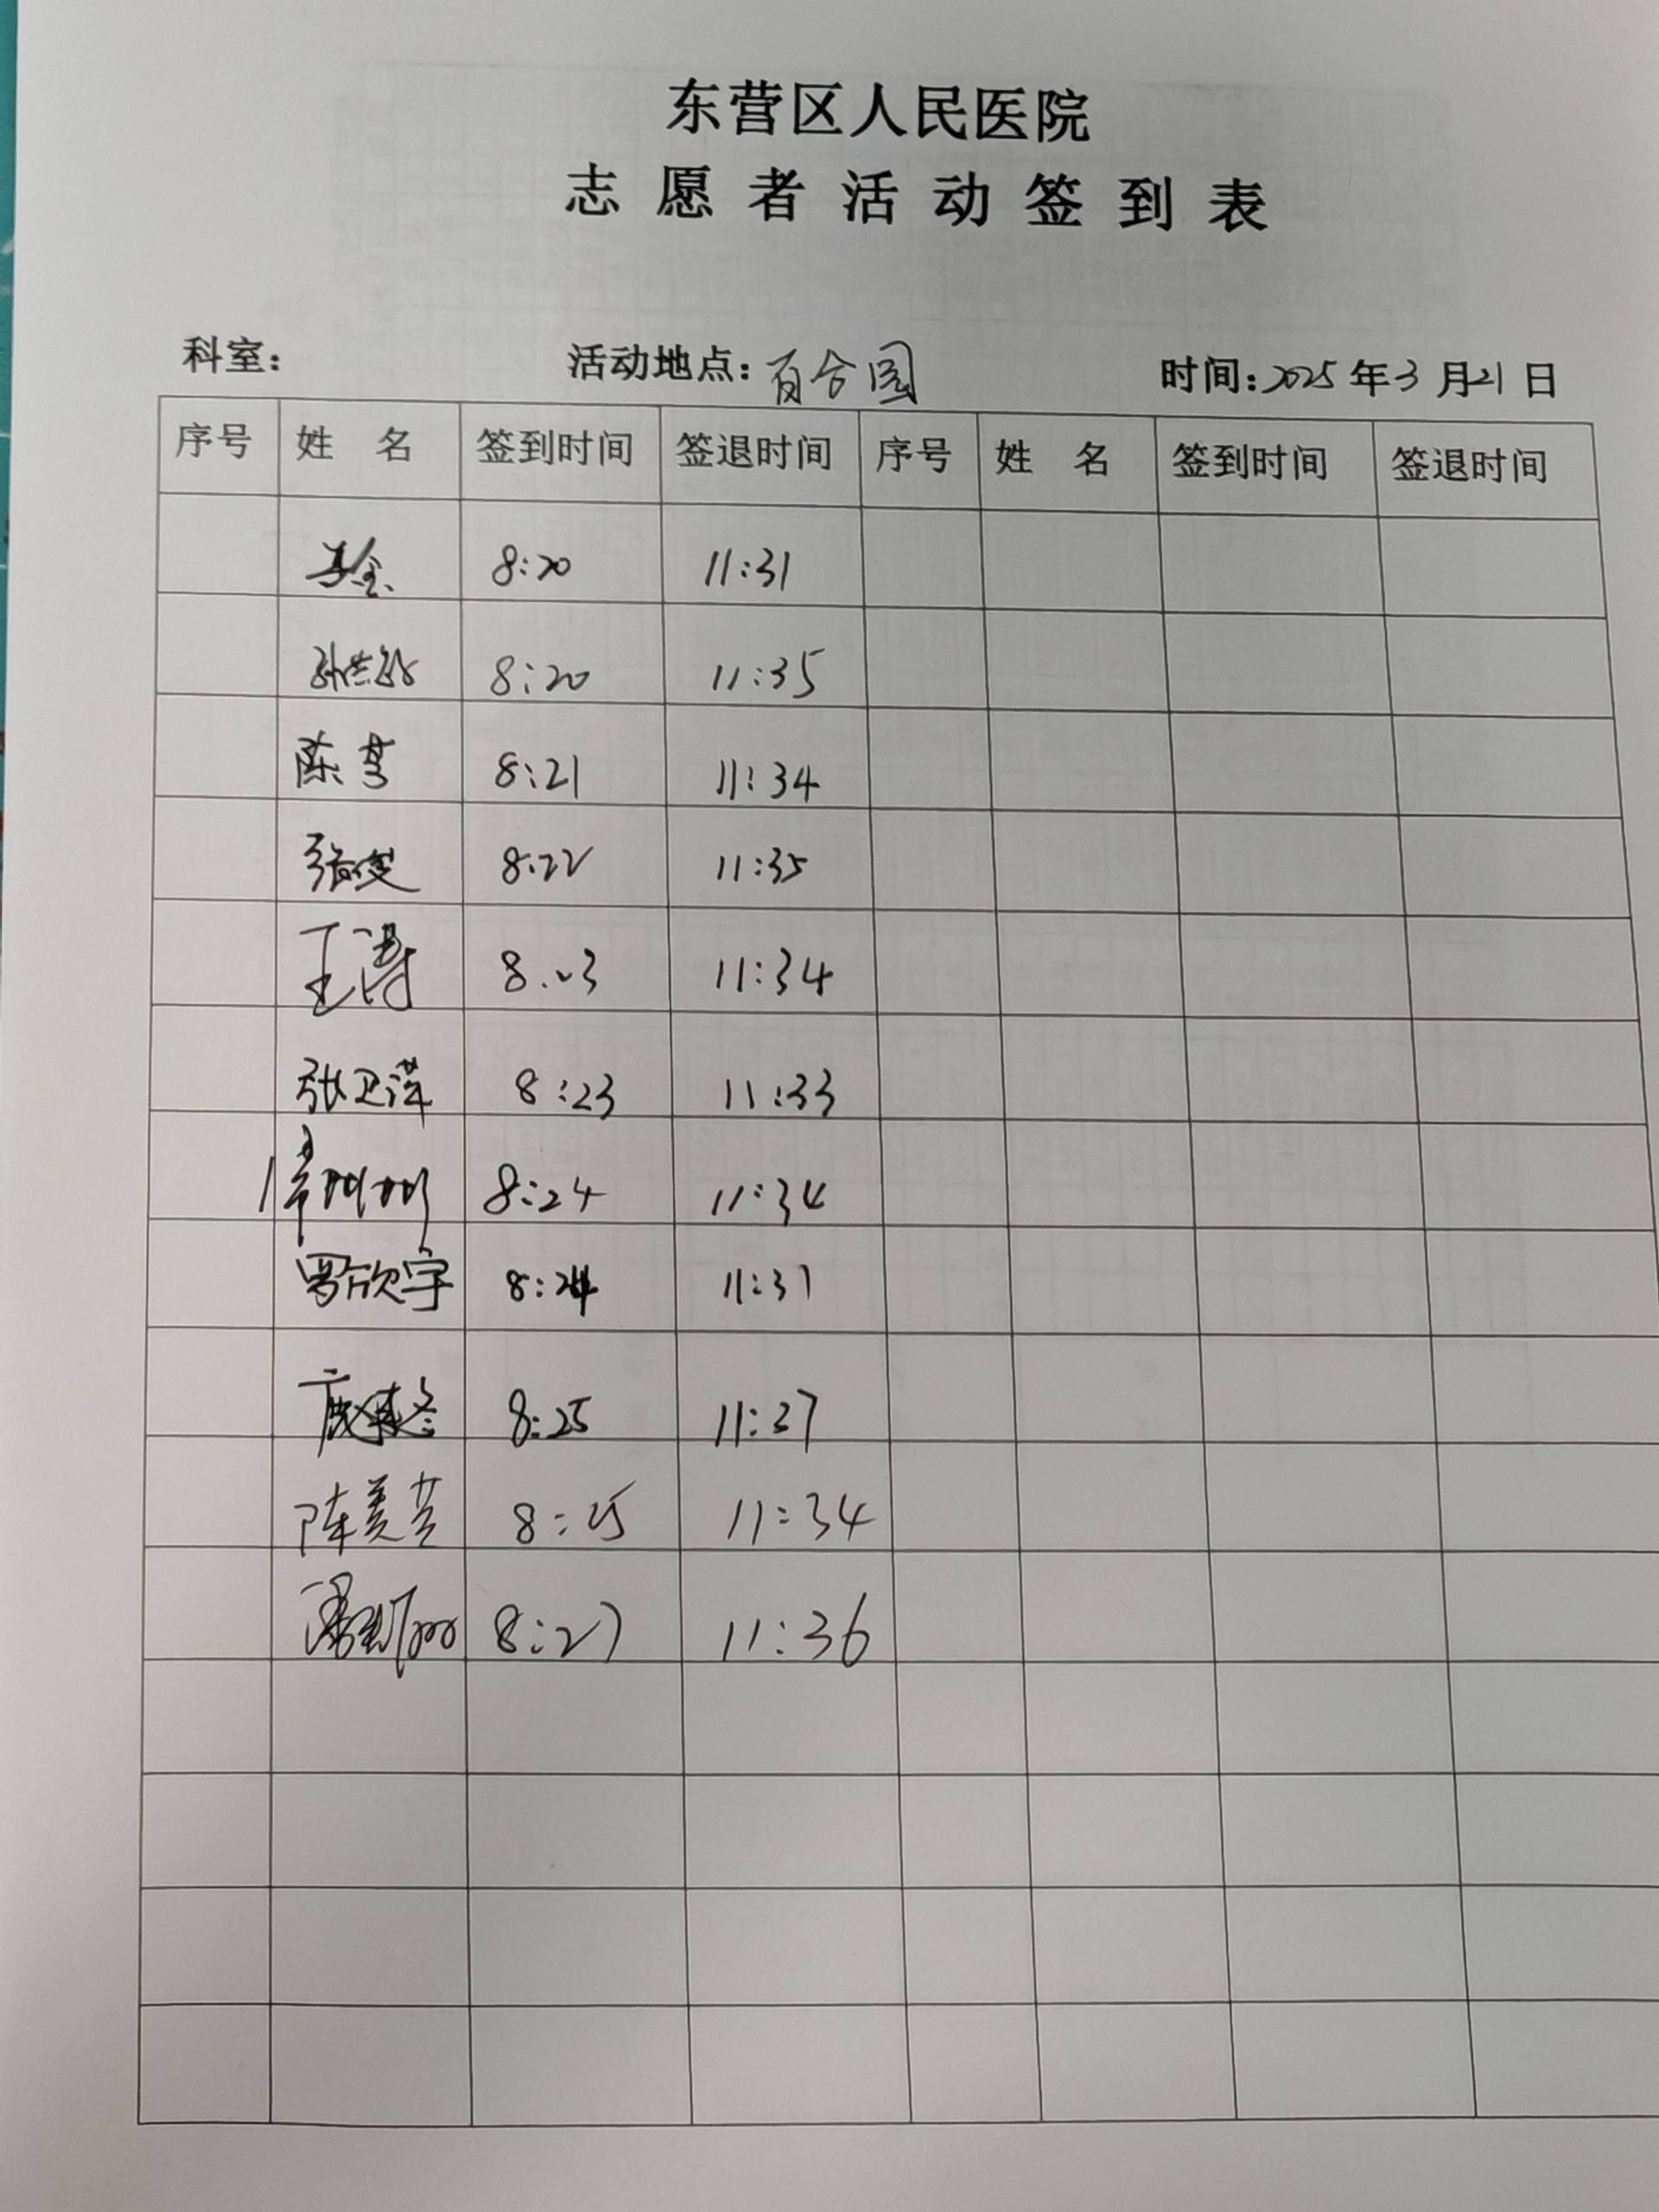 东营区人民医院
志愿者活动签到表
科室: 活动地点: 百合园 时间: 2025年3月21日
序号 姓名 签到时间 签退时间 序号 姓名 签到时间 签退时间
8:20 11:31
8:20 11:35
陈 8:21 11:34
张俊 8:22 11:35
王涛 8:23 11:34
张卫萍 8:23 11:33
常州州 8:24 11:34
罗欣宇 8:24 11:37
8:25 11:37
陈美芸 8:25 11:34
8:27 11:36